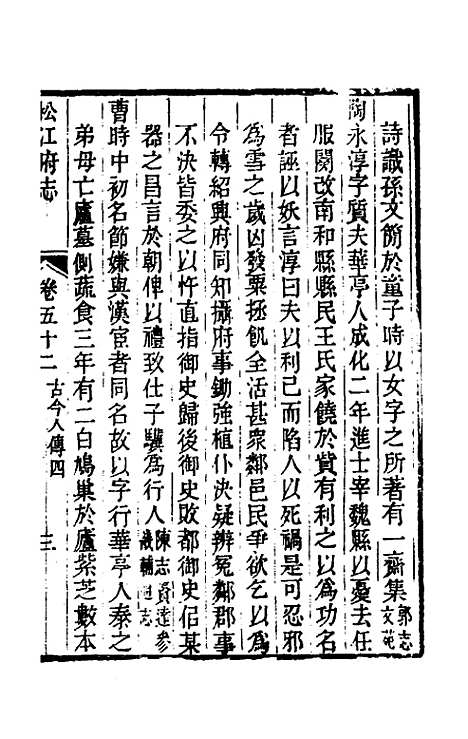 詩識孫文簡於童子時以女字之所著有一齋集郭志文苑
陶永淳字質夫華亭人成化二年進士宰魏縣以憂去任
服闋改南和縣縣民王氏家饒於貲有利之以為功名
者誣以妖言淳曰夫以利己而陷人以死禍是可忍邪
為雪之歲凶發粟拯飢全活甚衆鄰邑民爭欲乞以為
令轉紹興府同知攝府事鋤強植仆決疑辨冤鄰郡事
不決皆委之以忤直指御史歸後御史敗都御史佀某
器之昌言於朝俾以禮致仕子驥為行人陳志資達參畿輔通志
曹時中初名節嫌與漢宦者同名故以字行華亭人泰之
弟母亡廬墓側蔬食三年有二白鳩巢於廬紫芝數本
松江府志 卷五十二 古今人傳四 三